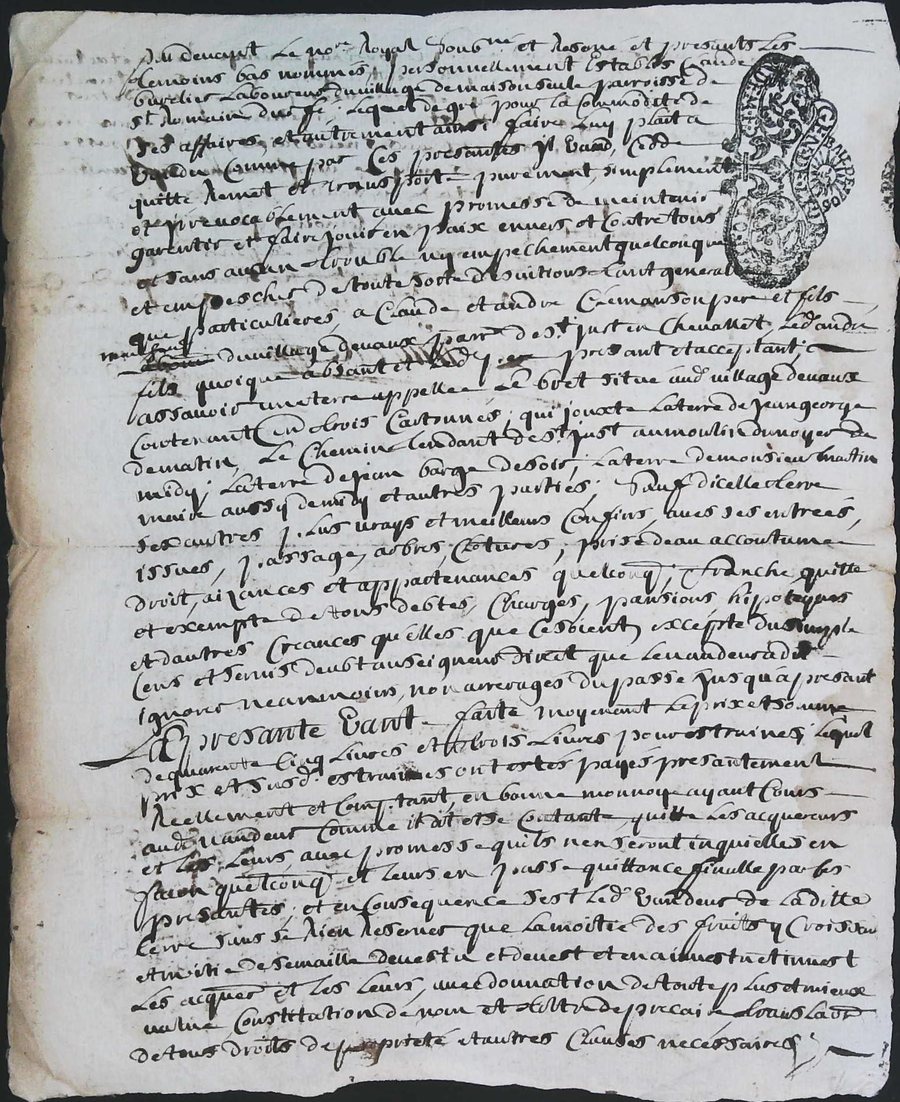 Pardevant Le no.re Royal soub.né et Reservé et presants Les
temoins bas nommés, personnellement Estably Claude
laboureur du village de maison seule parroisse de
S.t Romain Lequel de gré pour la commodité de
ses affaires et autrement ainsi faire luy plait a
vendu Comme par Ces presantes Il Vand, Cedde
quitte Remet et transporte purement, simplement
et irrevocablement avec promesse de maintenir
garentir et faire jouir en paix envers et Contre tous
et sans aucun trouble ny empechement quelconque
et empescher de toute sorte d'evictions tant general
que particulieres, a Claude et andré père et fils
du village devaux parr.e de S.t just en Chevallet, Led. andré
fils quoique absant et Led. pere presant et acceptant;
assavoir une terre appellée Le bret situé aud. village devaux
Contenant trois Cartonnés, qui jouxte La terre de jean george
de matin, Le Chemin tendant de S.t just au moulin du noyer de
midy; La terre de jean barge de soir, La terre de monsieur
maire aussy de midy et autres parties; Sauf d'icelle terre
ses autres plus vrays et meilleurs Confins, avec ses entrées,
issues, passage, arbres, Clotures, prise d'eau accoutumée
droit, aizances et appartenances quelconq., franche, quitte
et exempte de tous debtes, Charges, pansions, hipoteques
et d'autres Creances qu'elles que Ce soient, excepté du simple
Cens et servis deubt au seigneur Direct que le vandeur a dit
ignorer neanmoins, non arrerages du passé jusqu'a presant
La presante Vante faite moyenant Le prix et somme
de quarente Cinq Livres et trois Livres pour estraines; Lequel
prix et susd. estraines ont estés payés presantement
Reellement et Comptant, en bonne monnoye ayant Cours
aud. vandeur Comme il dit et se Contante, quitte Les acquereurs
et les Leurs, avec promesse qu'ils n'en seront inquiettés en
façon quelconq. et leurs en passe quittance finalle par Ces
presantes; et en Consequence s'est Led. Vandeur de La ditte
terre sans se Rien Reserver que La moitié des fruits y Croissan
et moitié de semaille devestu et devest et en a investu et invest
Les acquer. et les Leurs, avec donnation de toute plus et mieux
value Constitution de nom et tiltre de precaire translaon
de tous droits de proprieté et autres Clauses nécéssaires;